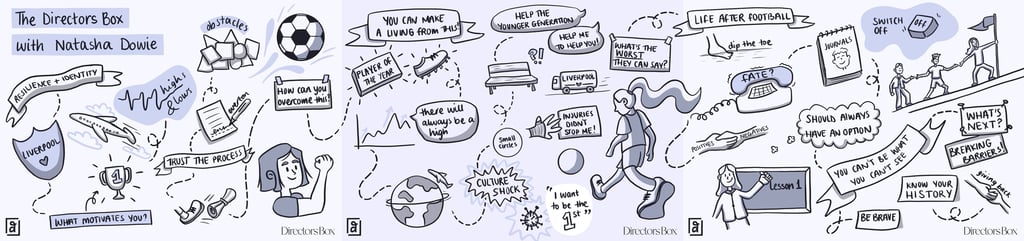 The Directors Box
with Natasha Dowie
RESILIENCE + IDENTITY
LIVERPOOL
highs
& lows
obstacles
How can you
overcome this?
TRUST THE PROCESS
1
WHAT MOTIVATES YOU?
DirectorsBox
YOU CAN MAKE
A LIVING FROM THIS!
PLAYER OF
THE YEAR
there will
always be a
high
HELP THE
YOUNGER GENERATION
HELP ME
TO HELP YOU!
?!
WHAT'S THE
WORST
THEY CAN SAY?
LIVERPOOL
INJURIES
DIDN'T
STOP ME!
Small
circles
CULTURE
SHOCK
"I want
to be the
1st"
DirectorsBox
LIFE AFTER FOOTBALL
dip the toe
FATE?
POSITIVES
NEGATIVES
JOURNALS
SWITCH
OFF
OFF
SHOULD ALWAYS
HAVE AN OPTION
YOU CAN'T BE WHAT
YOU CAN'T SEE
Lesson 1
WHAT'S
NEXT?
BREAKING
BARRIERS!
KNOW YOUR
HISTORY
giving back
BE BRAVE
DirectorsBox